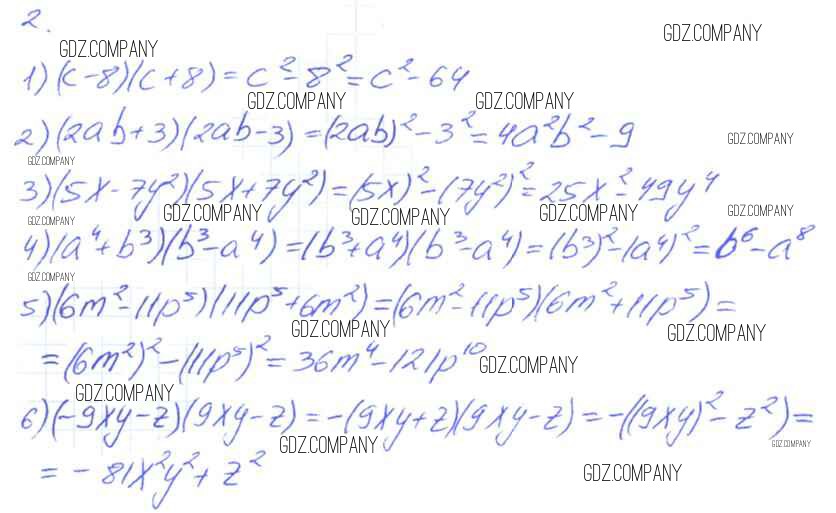 2.
GDZ.COMPANY
GDZ.COMPANY
1) (c-8)(c+8) = c²-8² = c²-64
GDZ.COMPANY GDZ.COMPANY
2) (2ab+3)(2ab-3) = (2ab)²-3² = 4a²b²-9
GDZ.COMPANY
GDZ.COMPANY
3) (5x-7y²)(5x+7y²) = (5x)²-(7y²)² = 25x²-49y⁴
GDZ.COMPANY GDZ.COMPANY GDZ.COMPANY GDZ.COMPANY
GDZ.COMPANY
4) (a⁴+b³)(b³-a⁴) = (b³+a⁴)(b³-a⁴) = (b³)²-(a⁴)² = b⁶-a⁸
GDZ.COMPANY
5) (6m²-11p⁵)(11p⁵+6m²) = (6m²-11p⁵)(6m²+11p⁵) =
GDZ.COMPANY GDZ.COMPANY
= (6m²)²-(11p⁵)² = 36m⁴-121p¹⁰
GDZ.COMPANY
GDZ.COMPANY
6) (-9xy-z)(9xy-z) = -(9xy+z)(9xy-z) = -((9xy)²-z²) =
GDZ.COMPANY GDZ.COMPANY
= -81x²y²+z²
GDZ.COMPANY